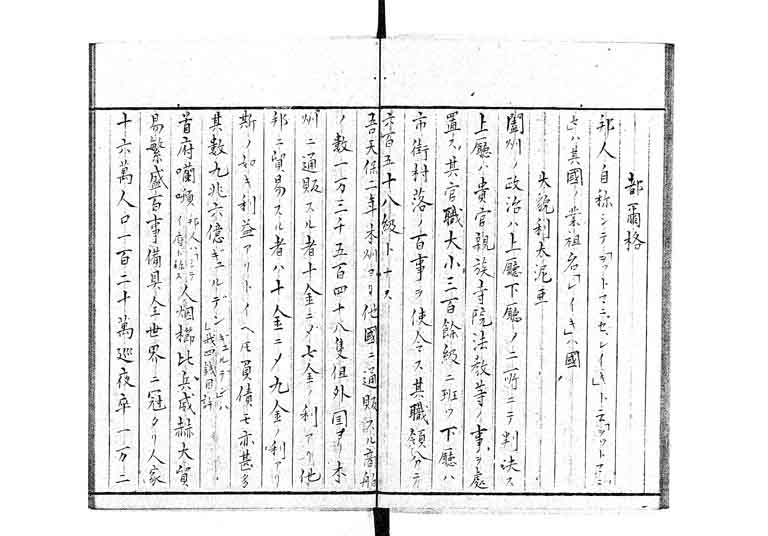 都爾格
邦人自称シテ「ヲットマニセ、レイキ」ト云「ヲットマニ
セ」ハ其國ノ業祖名「レイキ」ハ國
大貌利太泥亜
闔州ノ政治ハ上廳下廳ノ二所ニテ判决ス
上廳ハ貴官親族寺院法教等ノ事ヲ處
置ス其官職大小三百餘級ニ班ツ下廳ハ
市街村落ノ百事ヲ使令ス其職領分テ
六百五十八級トナス
吾天保二年本州ヨリ他國ニ通販スル商船
ノ數一万三千五百四十八隻但外国ヨリ本
州ニ通販スル者十金ニメ七金ノ利アリ他
邦ニ貿易スル者ハ十金ニメ九金ノ利アリ
斯ノ如キ利益アリトイヘ𪜈負債モ亦甚多
其數九兆六億ギュルデン ギュルデンハ我四錢目許
首府囒噸 人烟櫛比兵威赫大貿
易繁盛百事備具全世界ニ冠タリ人家
十六萬人口一百二十萬巡夜卒一万二